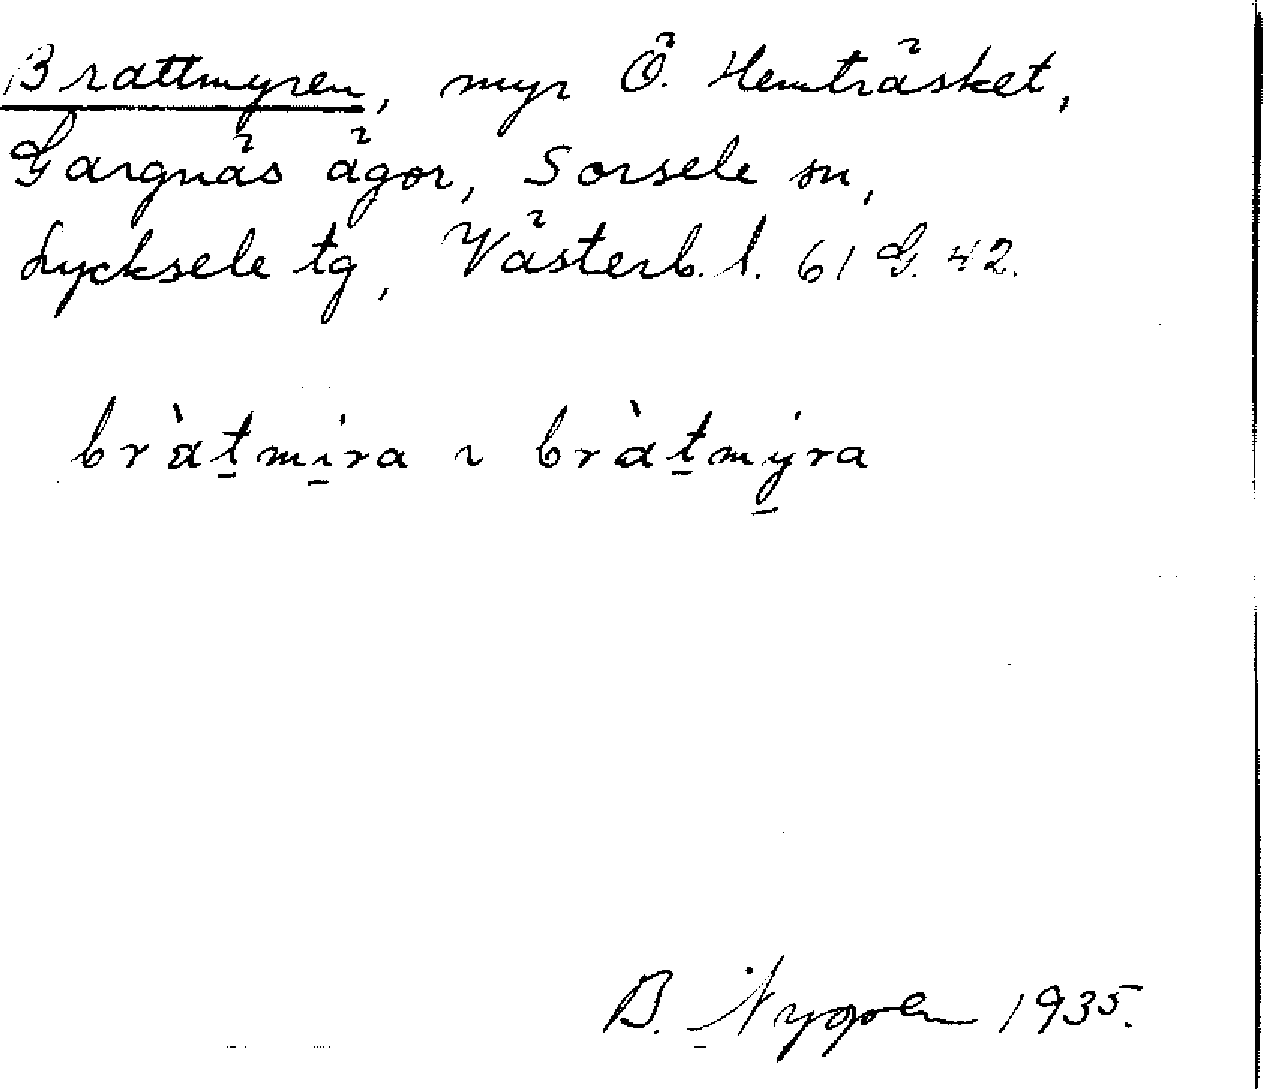 Brattmyren, myr Ö. Hemträsket,
Gargnäs ägor, Sorsele sn,
Lycksele tg, Västerb. l. 61 G. 42.
bràt̲mi̲ra ~ bràt̲my̲ra
B. Nygren 1935.